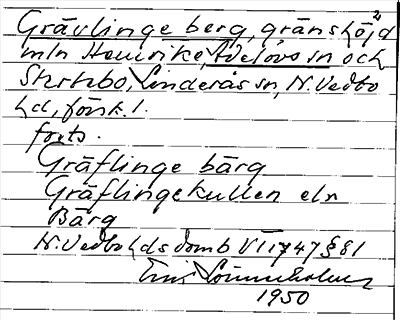 Grävlinge berg, gränshöjd
mln Henrike, Adelövs sn och
Sturebo, Linderås sn, N. Vedbo
hd, förvk. 1.
forts.
Gräflinge bärg
Gräflingekullen elr
Bärg
N. Vedbo hds domb VII 1747 § 81
1950